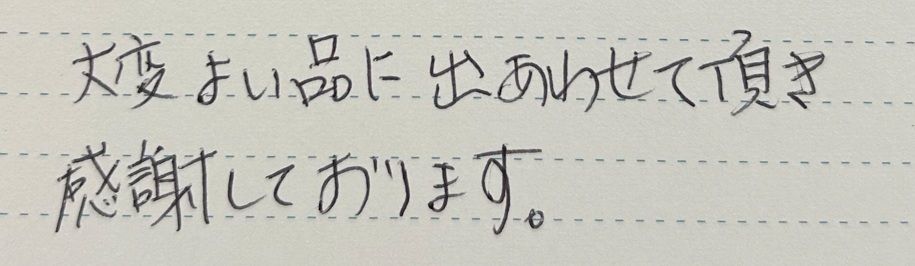 大変よい品に出あわせて頂き
感謝しております。